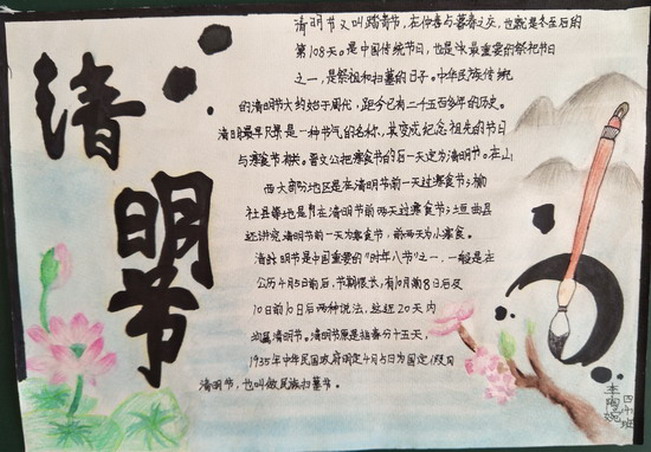 清明节
清明节又叫踏青节，在仲春与暮春之交，也就是冬至后的
第108天。是中国传统节日，也是最重要的祭祀节日
之一，是祭祖和扫墓的日子。中华民族传统
的清明节大约始于周代，距今已有二千五百多年的历史。
清明最早只是一种节气的名称，其变成纪念祖先的节日
与寒食节相关。晋文公把寒食节的后一天定为清明节。在山
西大部分地区是在清明节前一天过寒食节；榆
社县等地是在清明节前两天过寒食节；垣曲县
还讲究清明节前一天为寒食节，前两天为小寒食。
清明节是中国重要的“时年八节”之一，一般是在
公历4月5日前后，节期很长，有10日前8日后及
10日前10日后两种说法，这近20天内
均属清明节。清明节原是指春分十五天，
1935年中华民国政府明定4月5日为国定假日
清明节，也叫做民族扫墓节。
四班
李